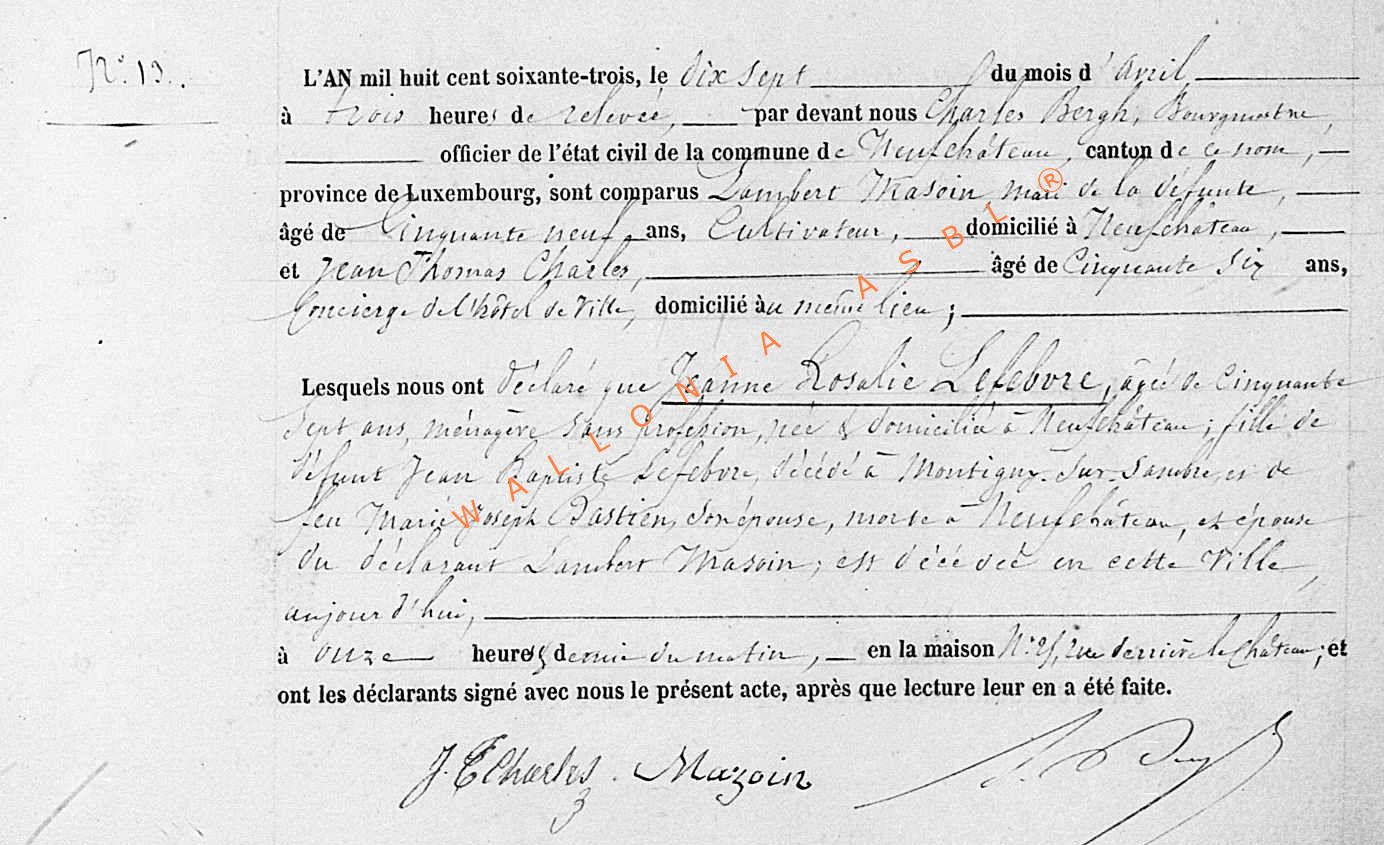 N° 13.
L'AN mil huit cent soixante-trois, le dix sept du mois d'Avril
à trois heures de relevée, par devant nous Charles Bergh, Bourgmestre,
officier de l'état civil de la commune de Neufchâteau, canton de ce nom,
province de Luxembourg, sont comparus Lambert Masoin, mari de la défunte,
âgé de Cinquante neuf ans, Cultivateur, domicilié à Neufchâteau,
et Jean Thomas Charles, âgé de Cinquante Six ans,
Concierge de l'hôtel de Ville, domicilié au même lieu;
Lesquels nous ont déclaré que Jeanne Rosalie Lefebvre, âgée de Cinquante
Sept ans, ménagère sans profession, née & domiciliée à Neufchâteau; fille de
défunt Jean Baptiste Lefebvre, décédé à Montigny-Sur-Sambre, et de
feu Marie Joseph Bastien, son épouse, morte à Neufchâteau, et épouse
du déclarant Lambert Masoin; est décédée en cette Ville,
aujourd'hui,
à onze heures & demie du matin, en la maison N° 25, rue derrière le Château; et
ont les déclarants signé avec nous le présent acte, après que lecture leur en a été faite.
J. T Charles Mazoin
WALLONIA ASBL ®